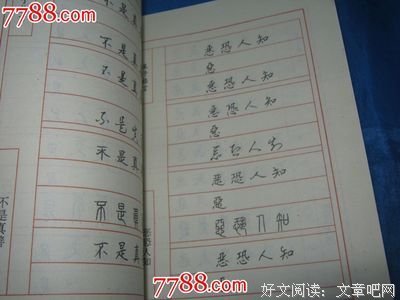 7788.com
不是真
不是真
不是真
不是
不是真
不是
不是真
不是真善
恶恐人知
恶
恶恐人知
恶恐人知
恶
恶恐人知
恶恐人知
恶
恶恐人知
恶恐人知
恶恐人知
7788.com
好文阅读：文章吧网